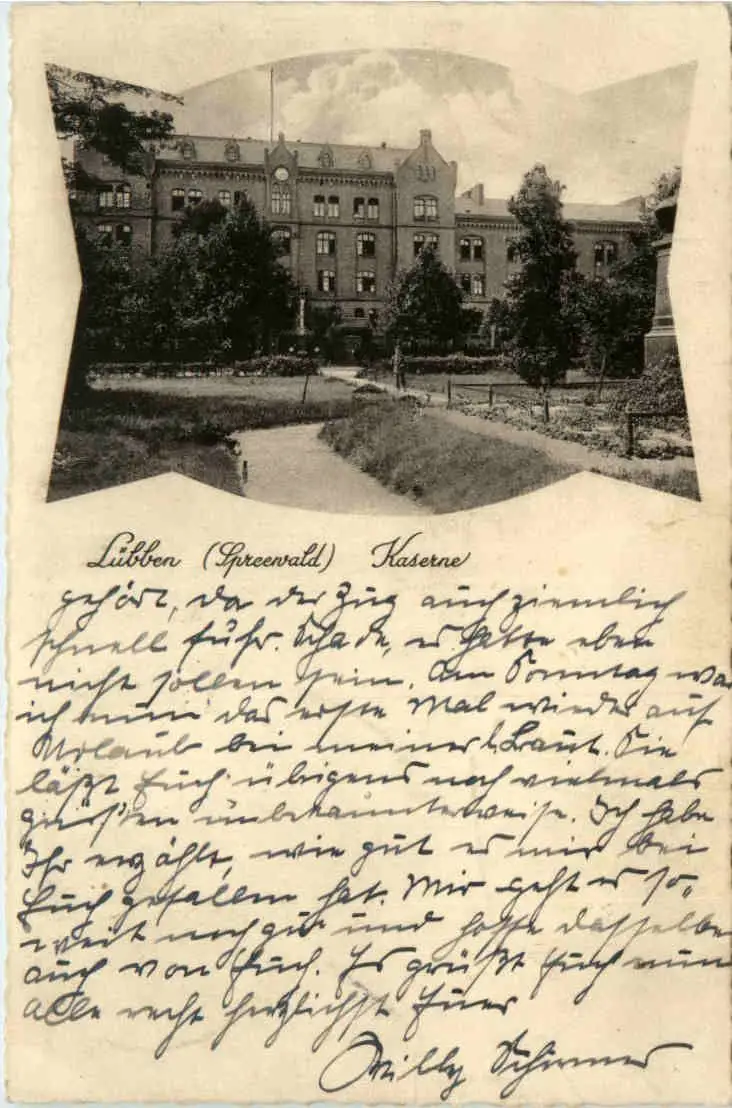 Lübben (Spreewald) Kaserne
gehört, da der Zug auch ziemlich
schnell fuhr. Schade, es hatte eben
nicht sollen sein. Am Sonntag war
ich nun das erste Mal wieder auf
Urlaub bei meiner Braut. Sie
läßt Euch übrigens noch vielmals
grüßen unbekannterweise. Ich habe
Ihr erzählt, wie gut es mir bei
Euch gefallen hat. Mir geht es so-
weit noch gut und hoffe dasselbe
auch von Euch. Es grüßt Euch nun
alle recht herzlichst Euer
Willy Schirmer